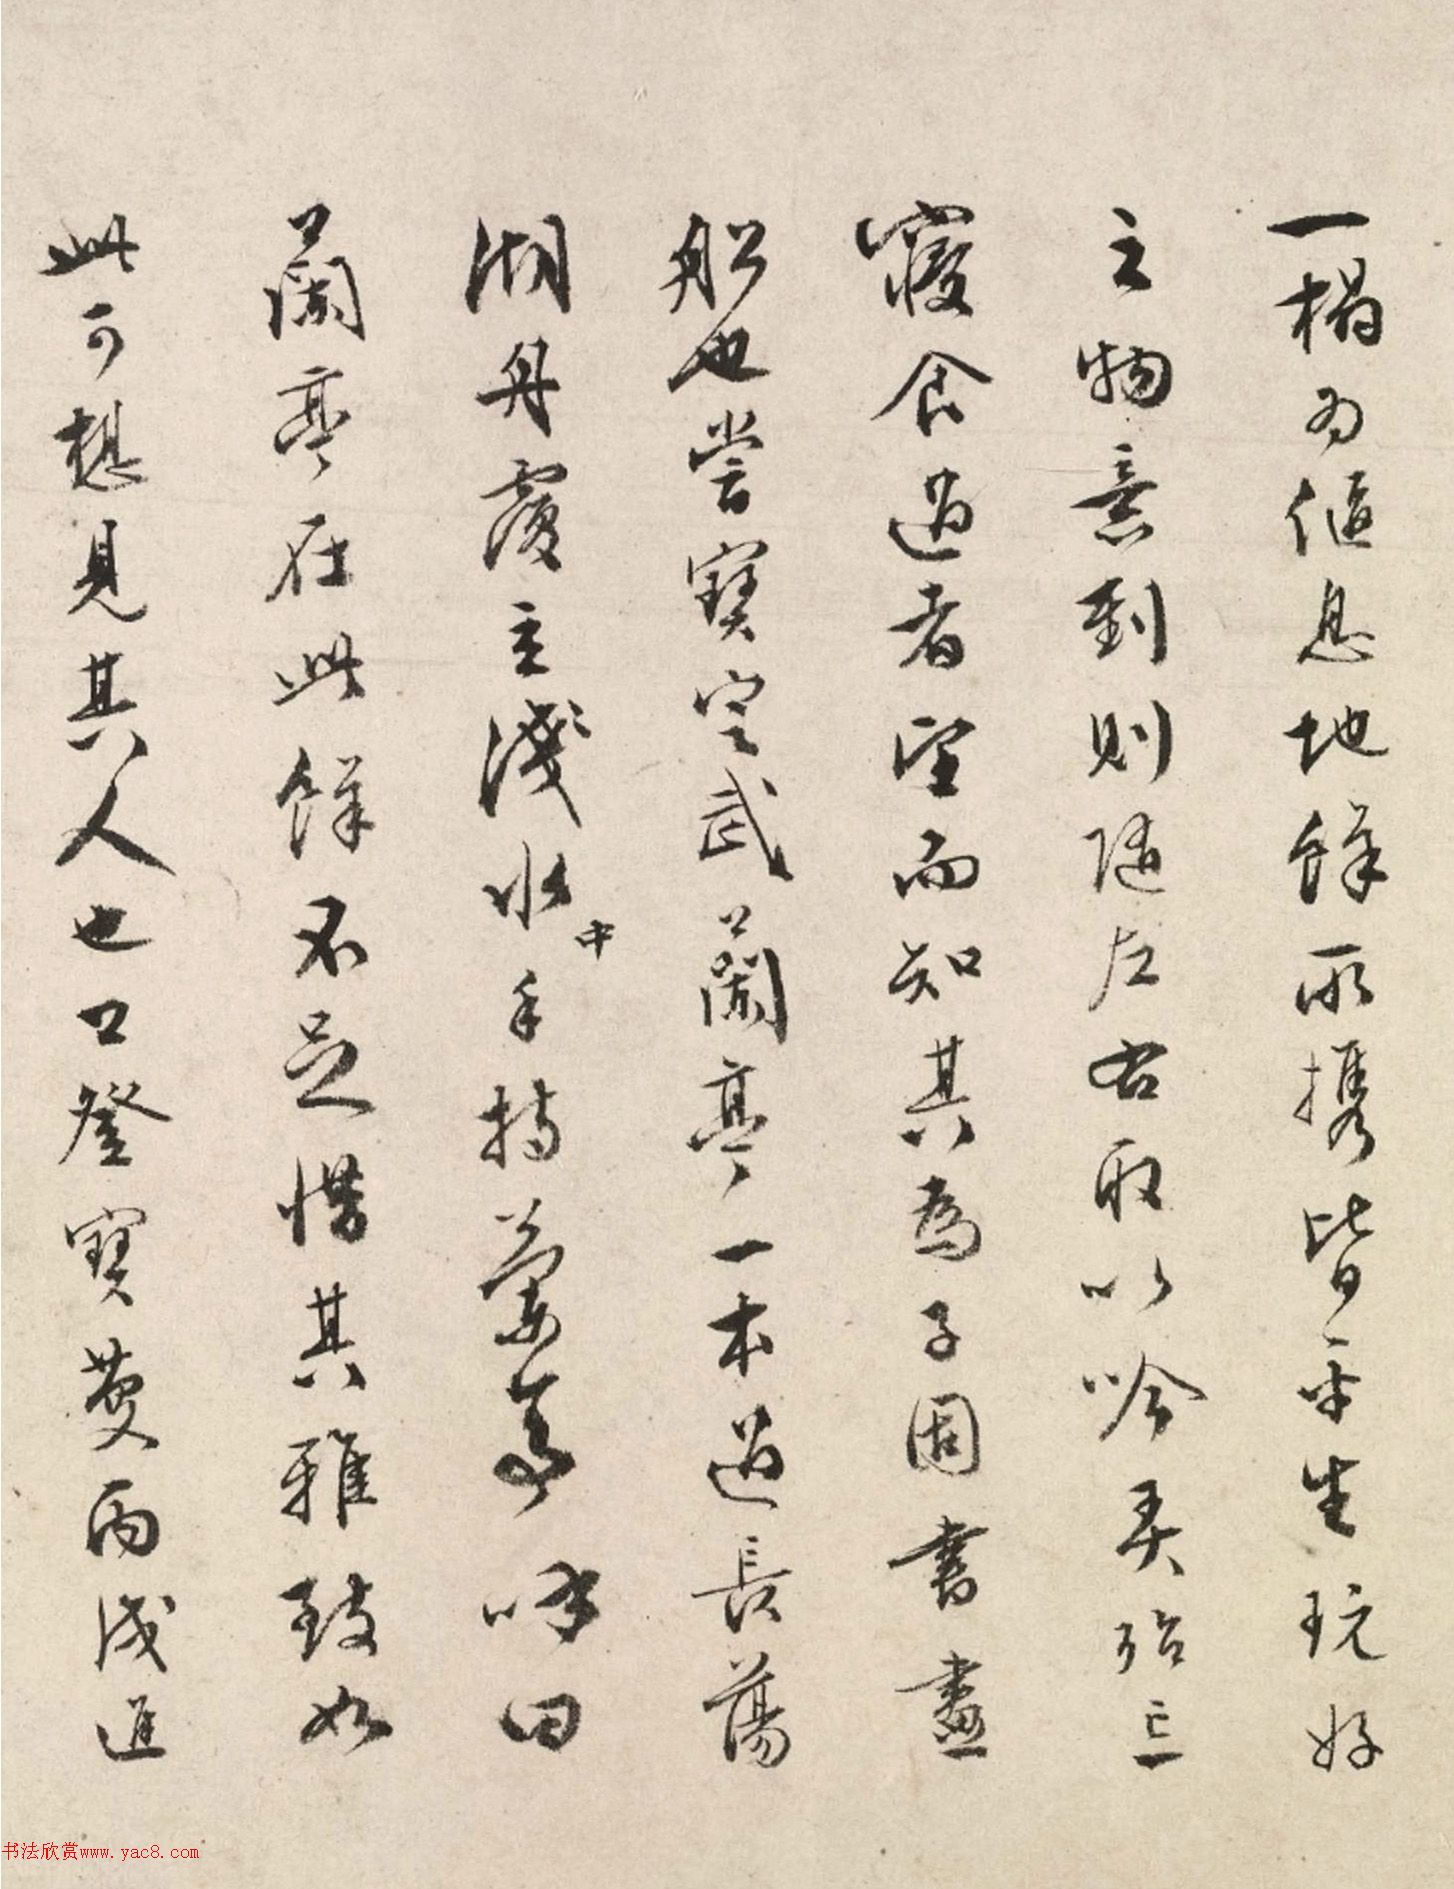 一榻為傴息地餘所攜皆平生玩好
之物意到則隨左右取以吟弄殆忘
寢食過者望而知其為子固書畫
船也嘗寶定武蘭亭一本過長蕩
湖舟覆立淺水中手持蘭亭呼曰
蘭亭在此餘不足惜其雅致如
此可想見其人也口登寶慶丙戌進
书法欣赏www.yac8.com